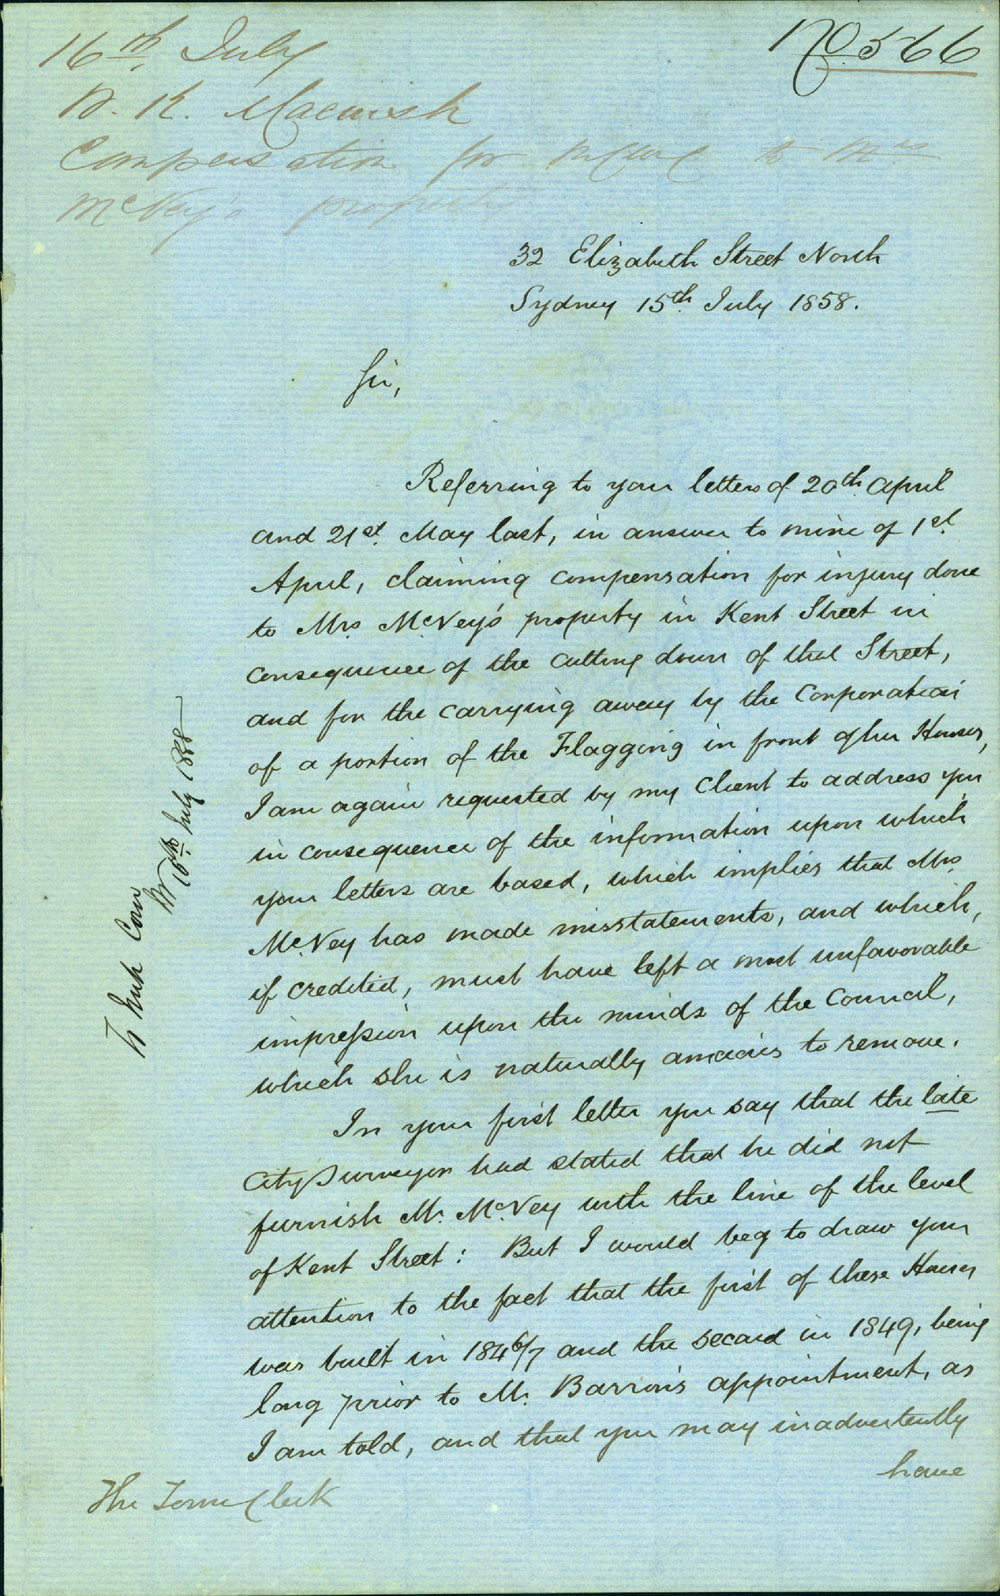 No 566
16th July
W. R. Macnish
Compensation for to Mrs
McVey's property
32 Elizabeth Street North
Sydney 15th July 1858.
Sir,
Referring to your letters of 20th April
and 21st May last, in answer to mine of 1st
April, claiming compensation for injury done
to Mrs McVey's property in Kent Street in
consequence of the cutting down of that Street,
and for the carrying away by the Corporation
of a portion of the Flagging in front of her Houses,
I am again requested by my Client to address you
in consequence of the information upon which
your letters are based, which implies that Mrs
McVey has made misstatements, and which,
if credited, must have left a most unfavorable
impression upon the minds of the Council,
which she is naturally anxious to remove.
In your first letter you say that the late
City Surveyor had stated that he did not
furnish Mr. McVey with the line of the level
of Kent Street: But I would beg to draw your
attention to the fact that the first of these Houses
was built in 1846/7 and the second in 1849, being
long prior to Mr. Barron's appointment, as
I am told, and that you may inadvertently
have
The Town Clerk
To Com
16th July 1858